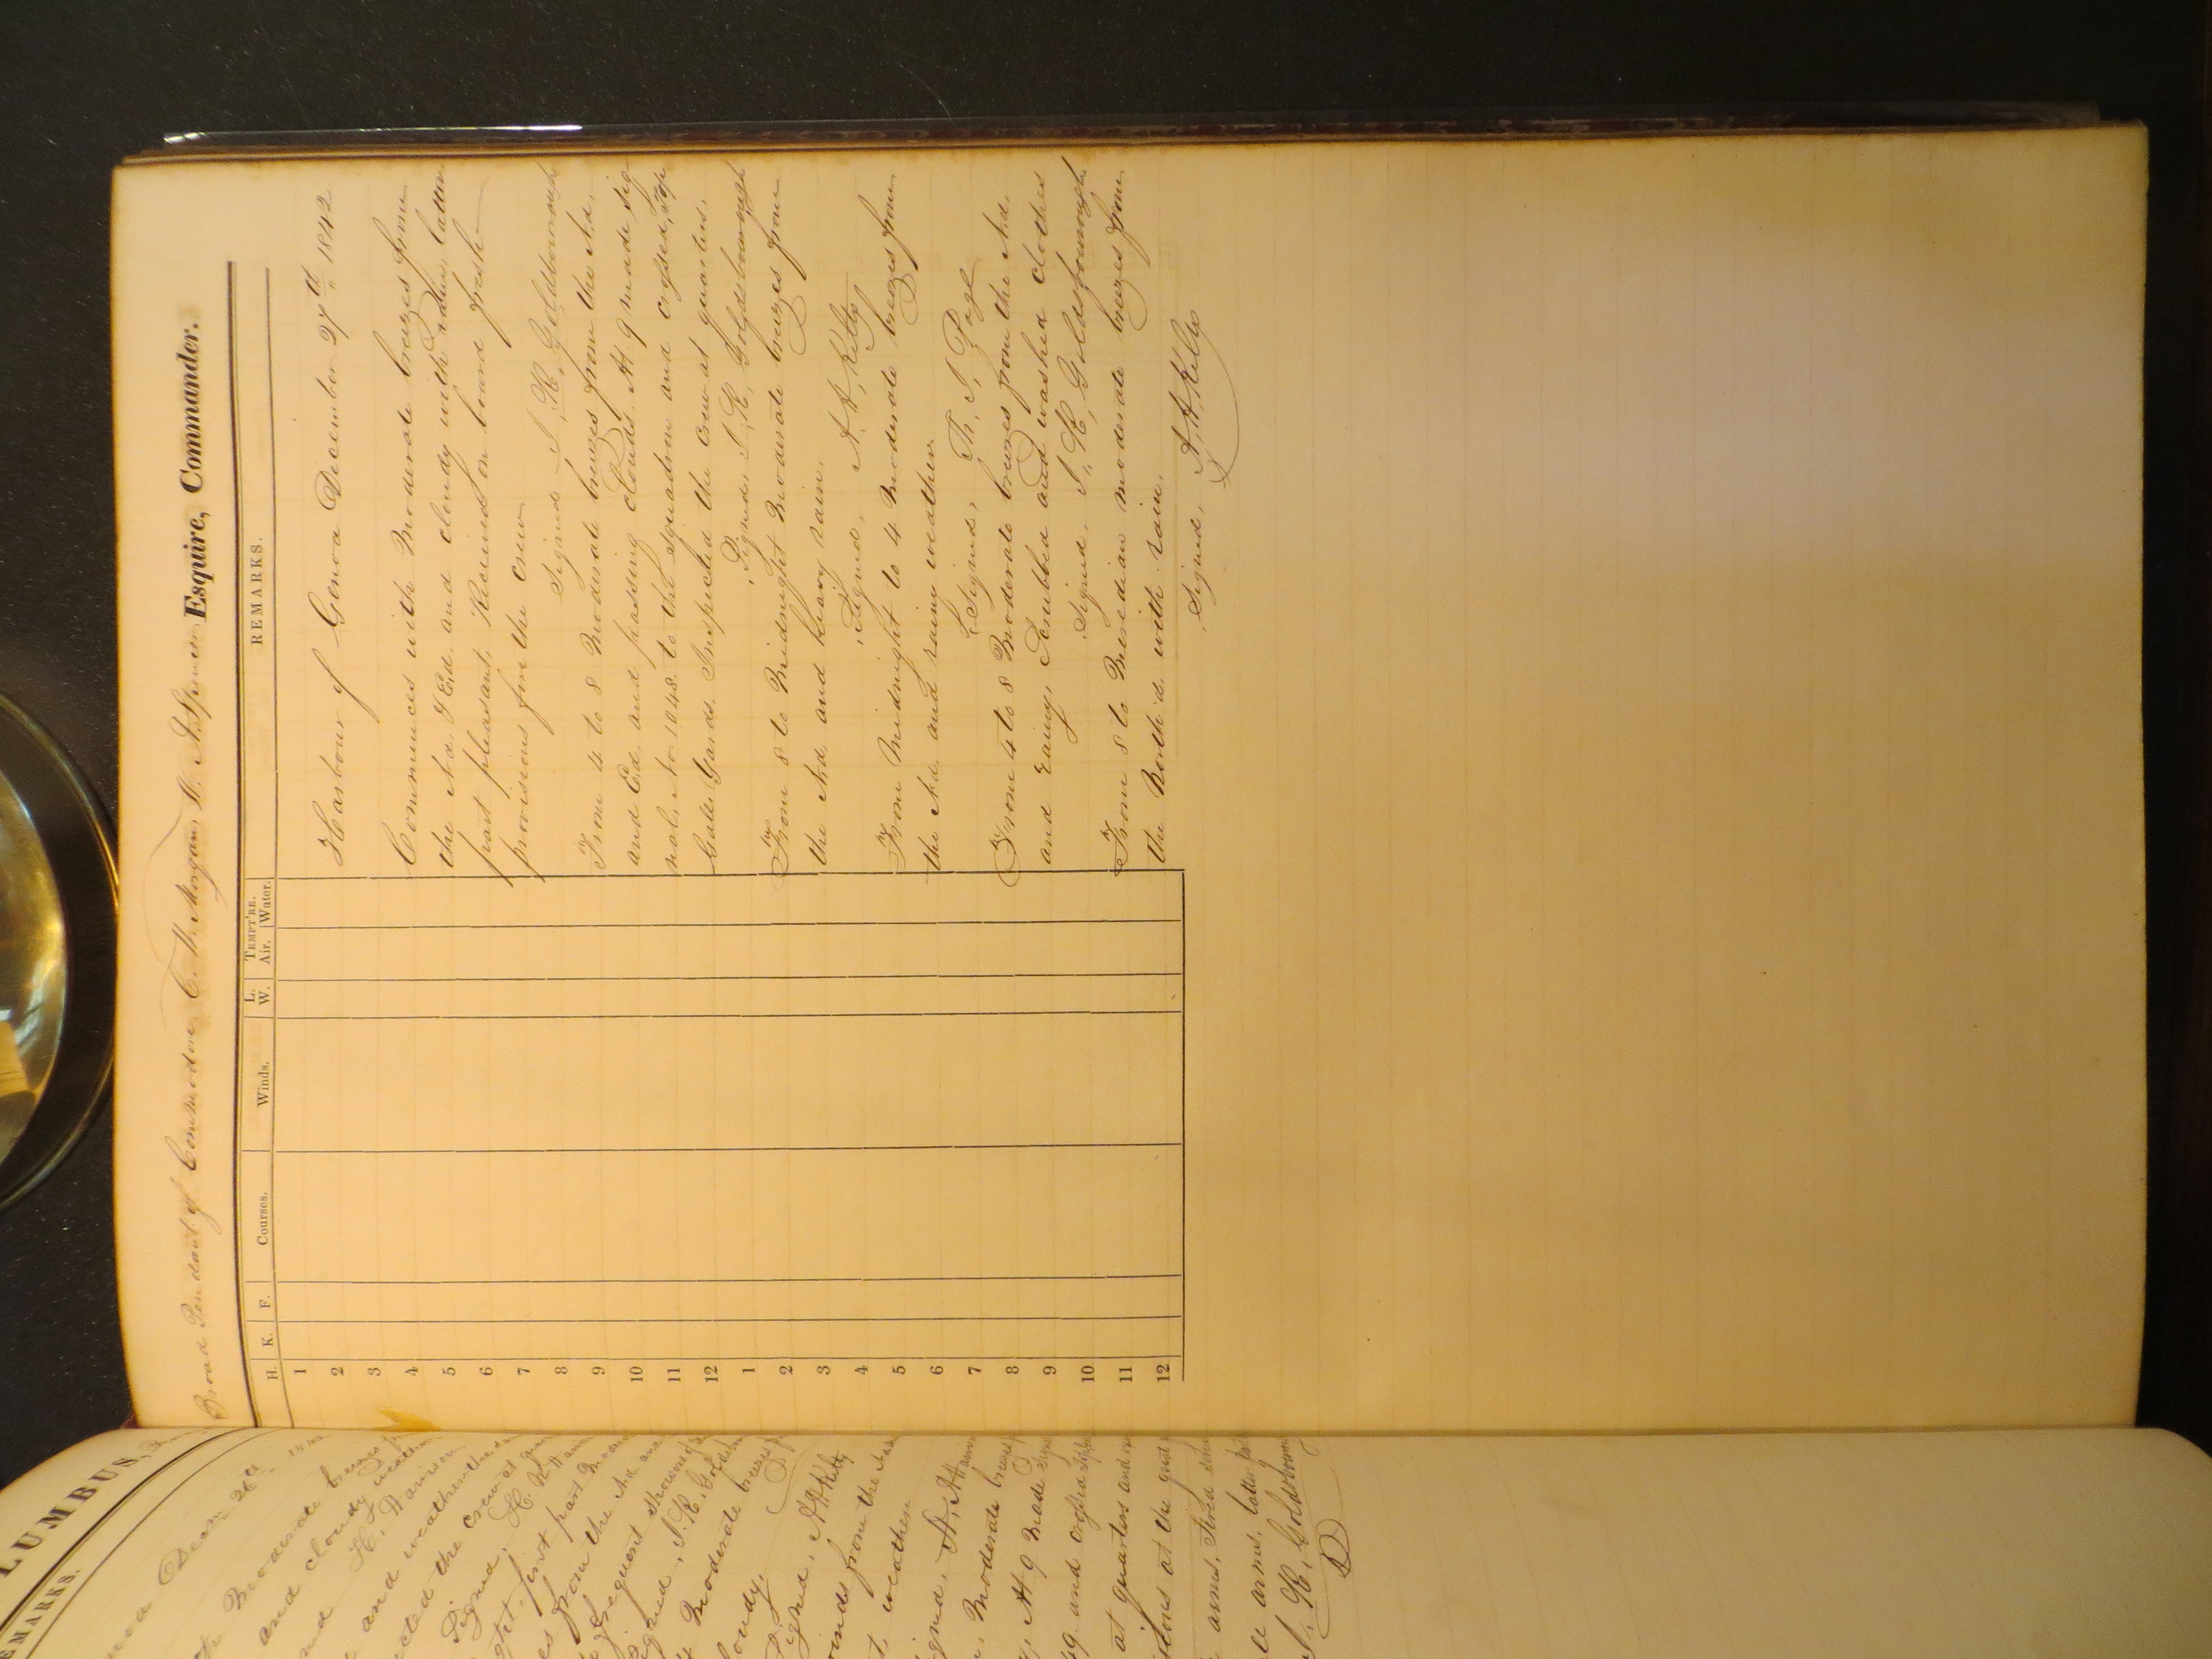 Broad Pendant of Commodore C. W. Morgan, W. A. Spencer Esquire, Commander.
H. K. F. Courses. Winds. L. W. TEMPT'RE. Air. Water. REMARKS.
1
2
3
4
5
6
7
8
9
10
11
12
1
2
3
4
5
6
7
8
9
10
11
12
Harbour of Genoa December 27th 1842
Commences with Moderate breezes from
the Nd. & Ed. and cloudy with rain, latter
part pleasant. Received on board fresh
provisions for the crew.
Signed I. R. Goldsborough
From 4 to 8 Moderate breezes from the Nd.
and Ed. and passing clouds. At 9 made sig
nal, No 1048. to the squadron and crossed Top
Galt. Yards. Inspected the crew at quarters.
Signed, I. R. Goldsborough
From 8 to Midnight Moderate breezes from
the Nd. and heavy rain.
Signed, A. A. Kilty
From Midnight to 4 Moderate breezes from
the Nd. and rainy weather
Signed, Th. J. Page
From 4 to 8 Moderate breezes from the Nd.
and rainy, Scrubbed and washed clothes
Signed, I. R. Goldsborough
From 8 to Meredian moderate breezes from
the North'd, with rain.
Signed, A. A. Kilty
LUMBUS,
EMARKS.
Decem 26th
Moderate breezes
and cloudy
H. Harrison
and weather
the crew at
Signed, H.
first part
from the Nd. and
frequent showers
I. R. Golds
Moderate breezes
A. A. Kilty
winds from the
weather
Moderate breezes
At 9 made
49. and crossed
at quarters and
at the great
arms,
arms. latter
I. R. Goldsborough